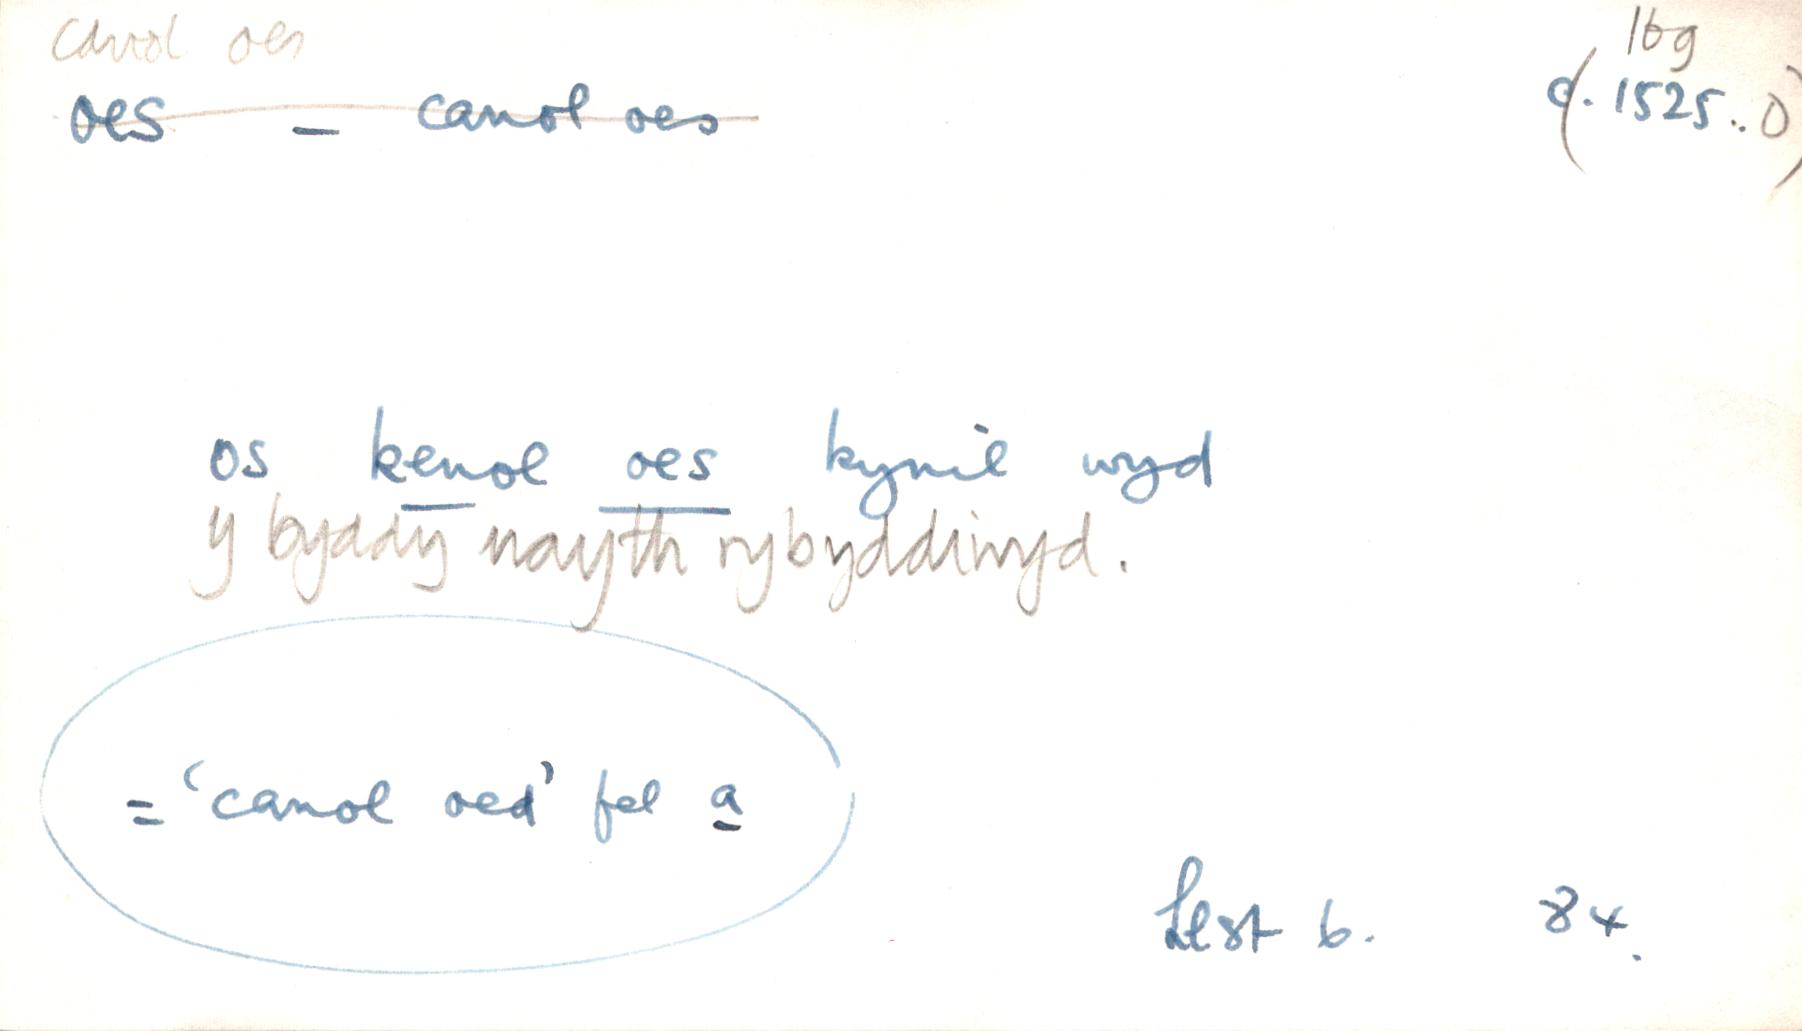 canol oes
16g
oes – canol oes
(c. 1525.. O)
os kenol oes kynil wyd
y byddy nayth rybyddiwyd.
= 'canol oed' fel a
Llst 6. 84.